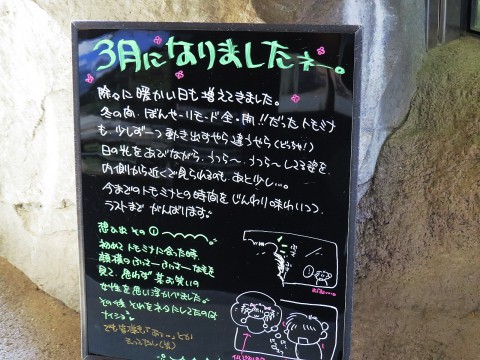 3月になりましたネー。
除々に暖かい日も増えてきました。
冬の間、ぼんやーりモード全・開!!だったトモミナ
も少しずーつ動き出すやら違うやら(どっちゃ!)
日の光をあびながら、うつら〜、うつら〜してる姿を
内側から近くで見られるのも、あと少し…。
今までのトモミナとの時間をじんわり味わいつつ、
ラストまでがんばります。
想い出その①
初めてトモミナに会った時、
顔横のふぁさーふぁさーな毛を
見て、思わず某お笑いの
女性を思い浮かべました。
その後それをネタにしてたのは
ナイショ